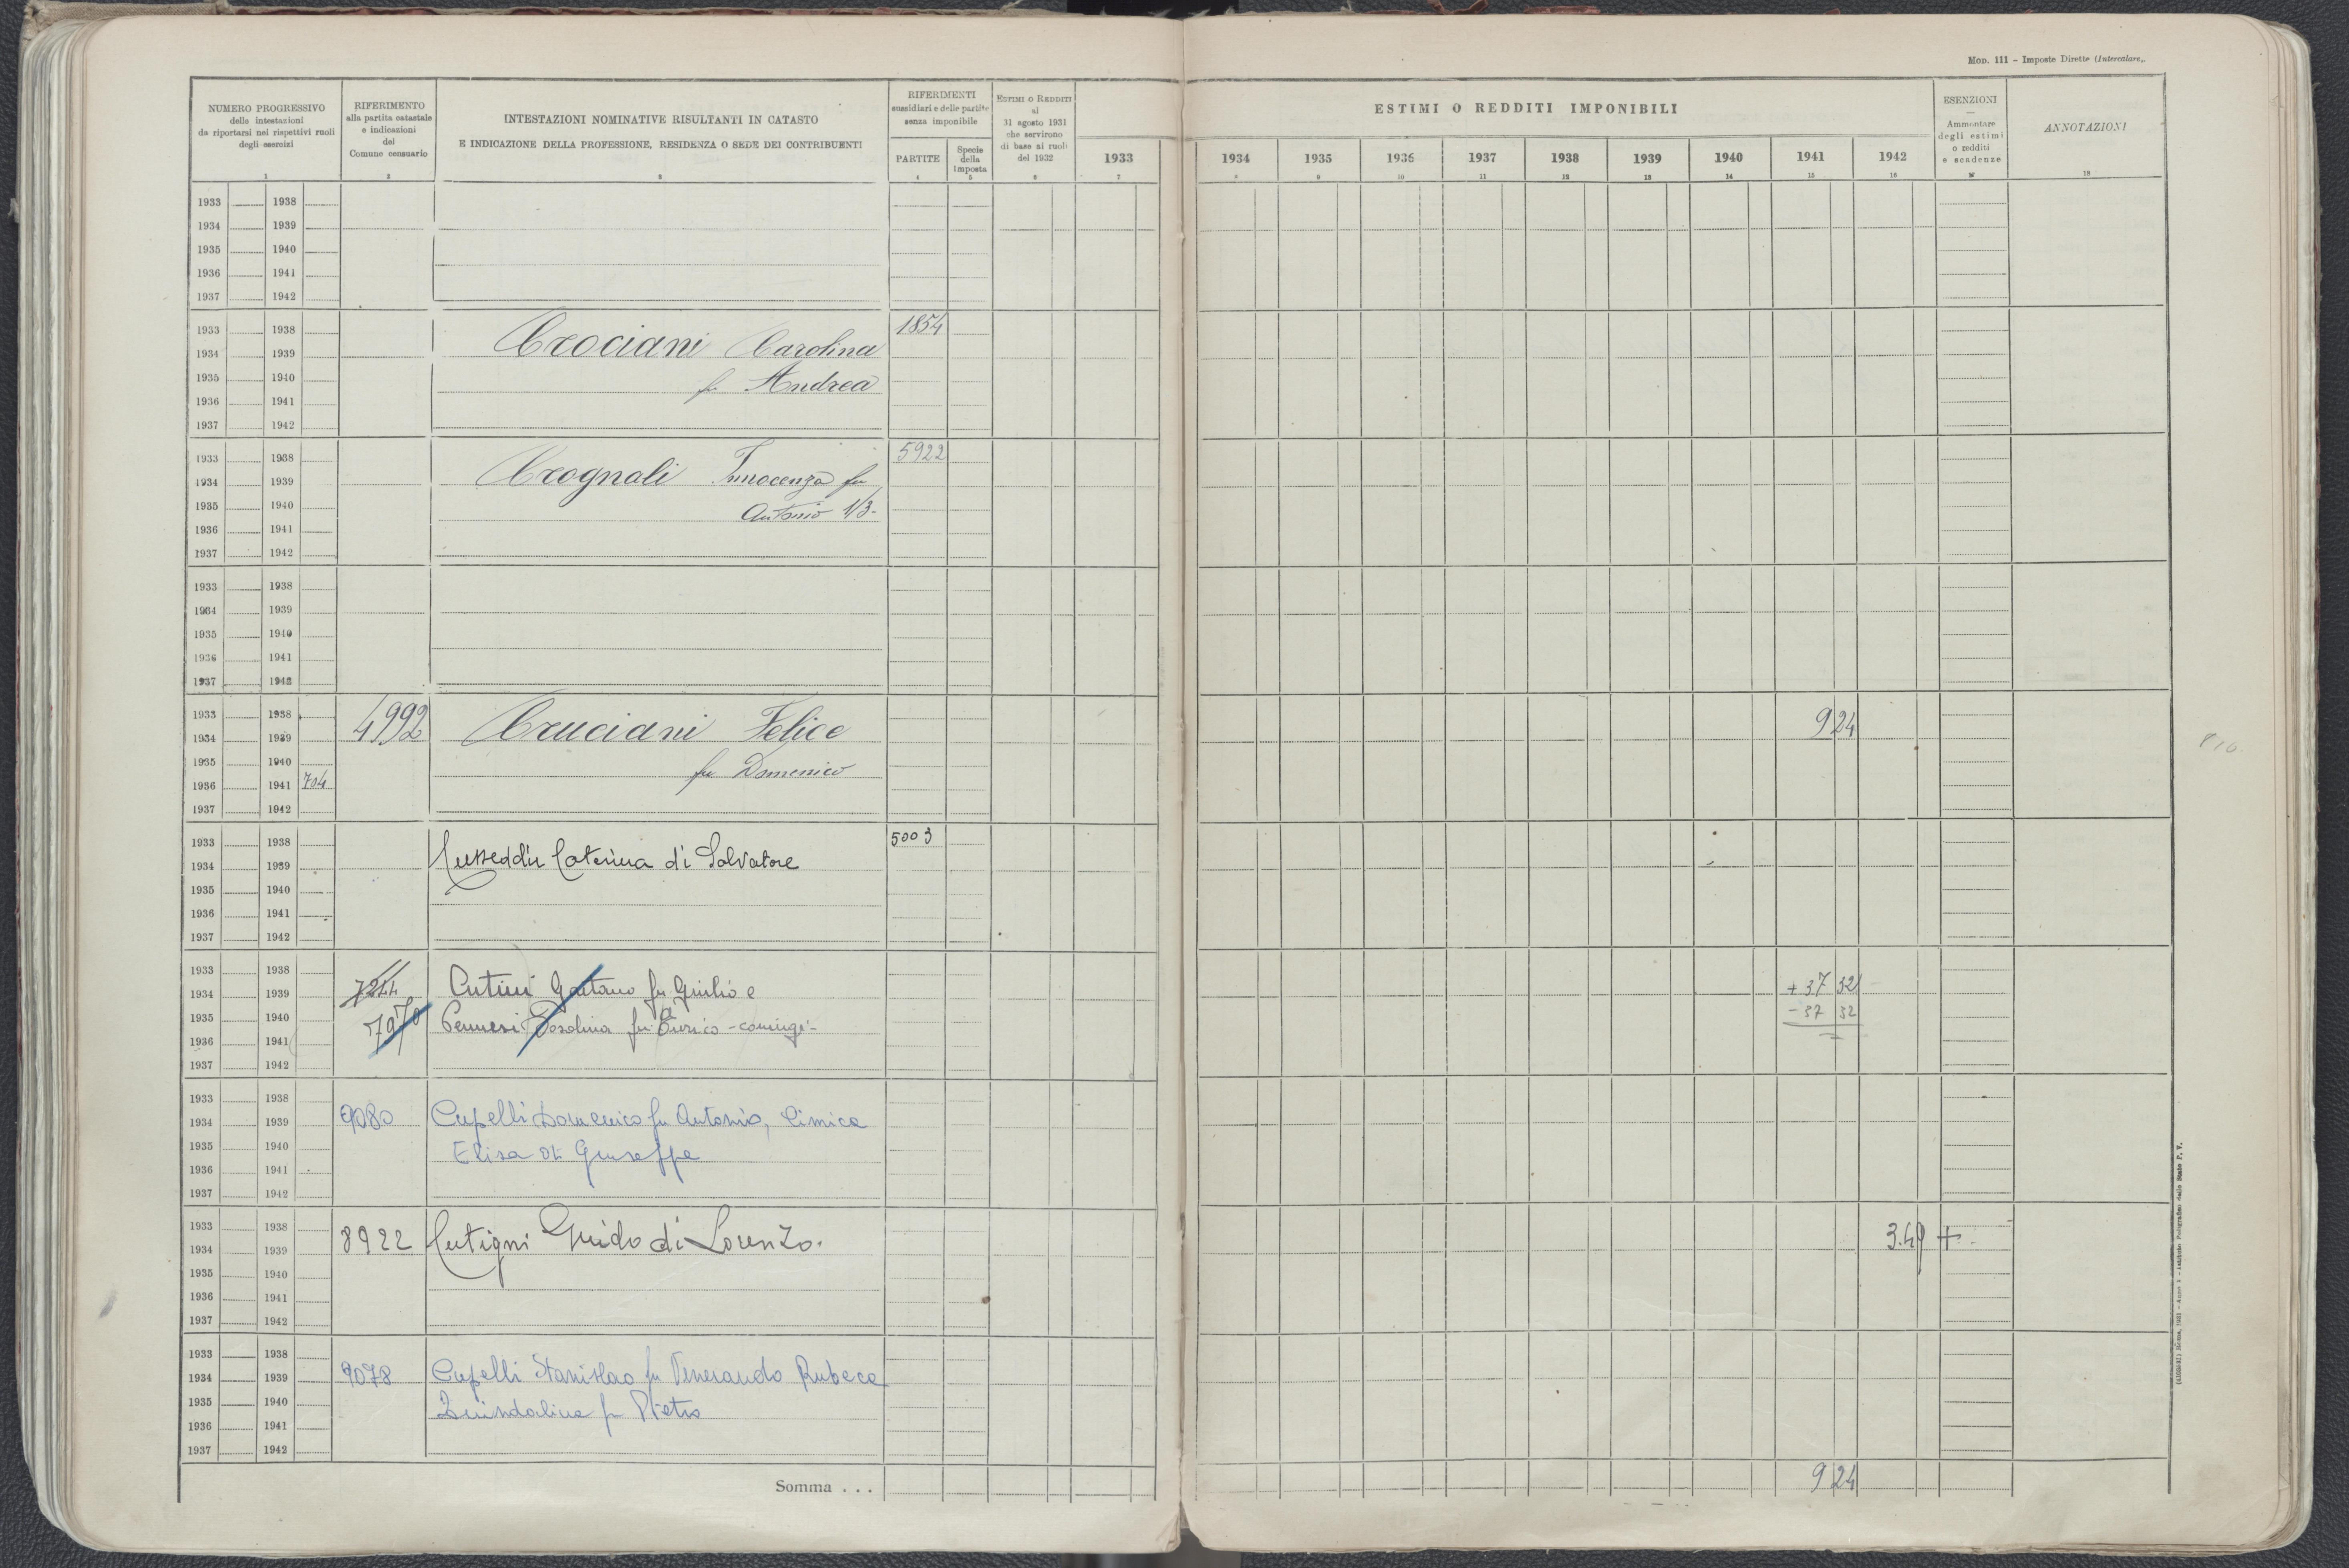 MOD. 111 – Imposte Dirette (Intercalare).
NUMERO PROGRESSIVO
delle intestazioni
da riportarsi nei rispettivi ruoli
degli esercizi
1
RIFERIMENTO
alla partita catastale
e indicazioni
del
Comune censuario
2
INTESTAZIONI NOMINATIVE RISULTANTI IN CATASTO
E INDICAZIONE DELLA PROFESSIONE, RESIDENZA O SEDE DEI CONTRIBUENTI
3
RIFERIMENTI
sussidiari e delle partite
senza imponibile
PARTITE
4
Specie
della
imposta
5
ESTIMI O REDDITI
al
31 agosto 1931
che servirono
di base ai ruoli
del 1932
6
ESTIMI O REDDITI IMPONIBILI
1933 1934 1935 1936 1937 1938 1939 1940 1941 1942
7 8 9 10 11 12 13 14 15 16
ESENZIONI
—
Ammontare
degli estimi
o redditi
e scadenze
ANNOTAZIONI
18
1933 1938
1934 1939
1935 1940
1936 1941
1937 1942
1933 1938 1854
1934 1939 Crociani Carolina
1935 1940 fu Andrea
1936 1941
1937 1942
1933 1938 5922
1934 1939 Crognali Innocenza fu
1935 1940 Antonio 1/3-
1936 1941
1937 1942
1933 1938
1934 1939
1935 1940
1936 1941
1937 1942
1933 1938 4992 Cruciani Felice 9 24
1934 1939
1935 1940 fu Domenico
1936 1941 704
1937 1942
1933 1938 5003
1934 1939 Cusseddu Caterina di Salvatore
1935 1940
1936 1941
1937 1942
1933 1938
1934 1939 7244 Cutini Gaetano fu Giulio e + 37 32
1935 1940 7970 Pennesi Rosolina fu Enrico - coniugi - - 37 32
1936 1941 =
1937 1942
1933 1938
1934 1939 9080 Cupelli Domenico fu Antonio, Cimica
1935 1940 Elisa di Giuseppe
1936 1941
1937 1942
1933 1938 8922 Cutigni Guido di Lorenzo. 3.49 +
1934 1939
1935 1940
1936 1941
1937 1942
1933 1938
1934 1939 9078 Cupelli Stanislao fu Venerando Rubeca
1935 1940 fu Pietro
1936 1941
1937 1942
Somma . . . 9 24